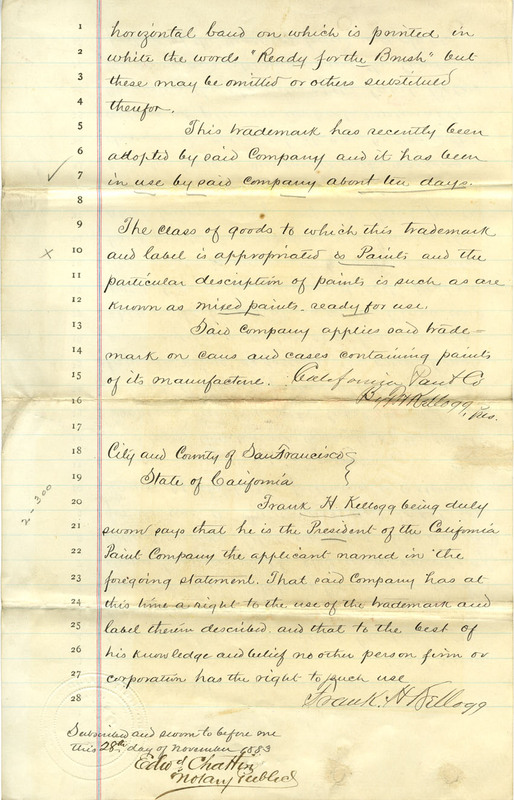 1 horizontal band on which is printed in
2 white the words "Ready for the Brush" but
3 these may be omitted or others substituted
4 therefor.
5 This trademark has recently been
6 adopted by said Company and it has been
7 in use by said company about ten days.
8
9 The class of goods to which this trademark
10 and label is appropriated is Paints and the
11 particular description of paints is such as are
12 known as mixed paints ready for use.
13 Said company applies said trade=
14 mark on cans and cases containing paints
15 of its manufacture. California Paint Co
16 By F H Kellogg, Pres.
17
18 City and County of San Francisco
19 State of California
2-300
20 Frank H Kellogg being duly
21 sworn says that he is the President of the California
22 Paint Company the applicant named in the
23 foregoing statement. That said Company has at
24 this time a right to the use of the trademark and
25 label therein described and that to the best of
26 his knowledge and belief no other person firm or
27 corporation has the right to such use
28 Frank. H Kellogg
Subscribed and sworn to before me
this 28th day of November 1883
Edwd Chattin
Notary Public